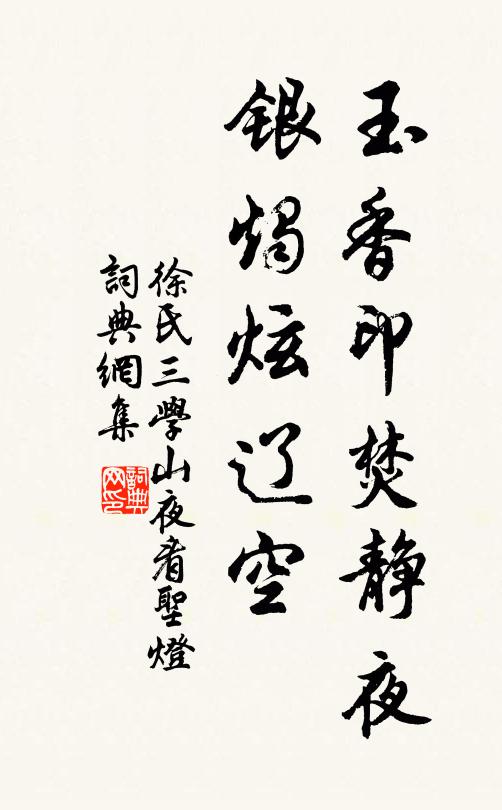 玉香印焚静夜
银烛炫辽空
徐氏三學山夜看聖燈
詞典網集
詞典
网印